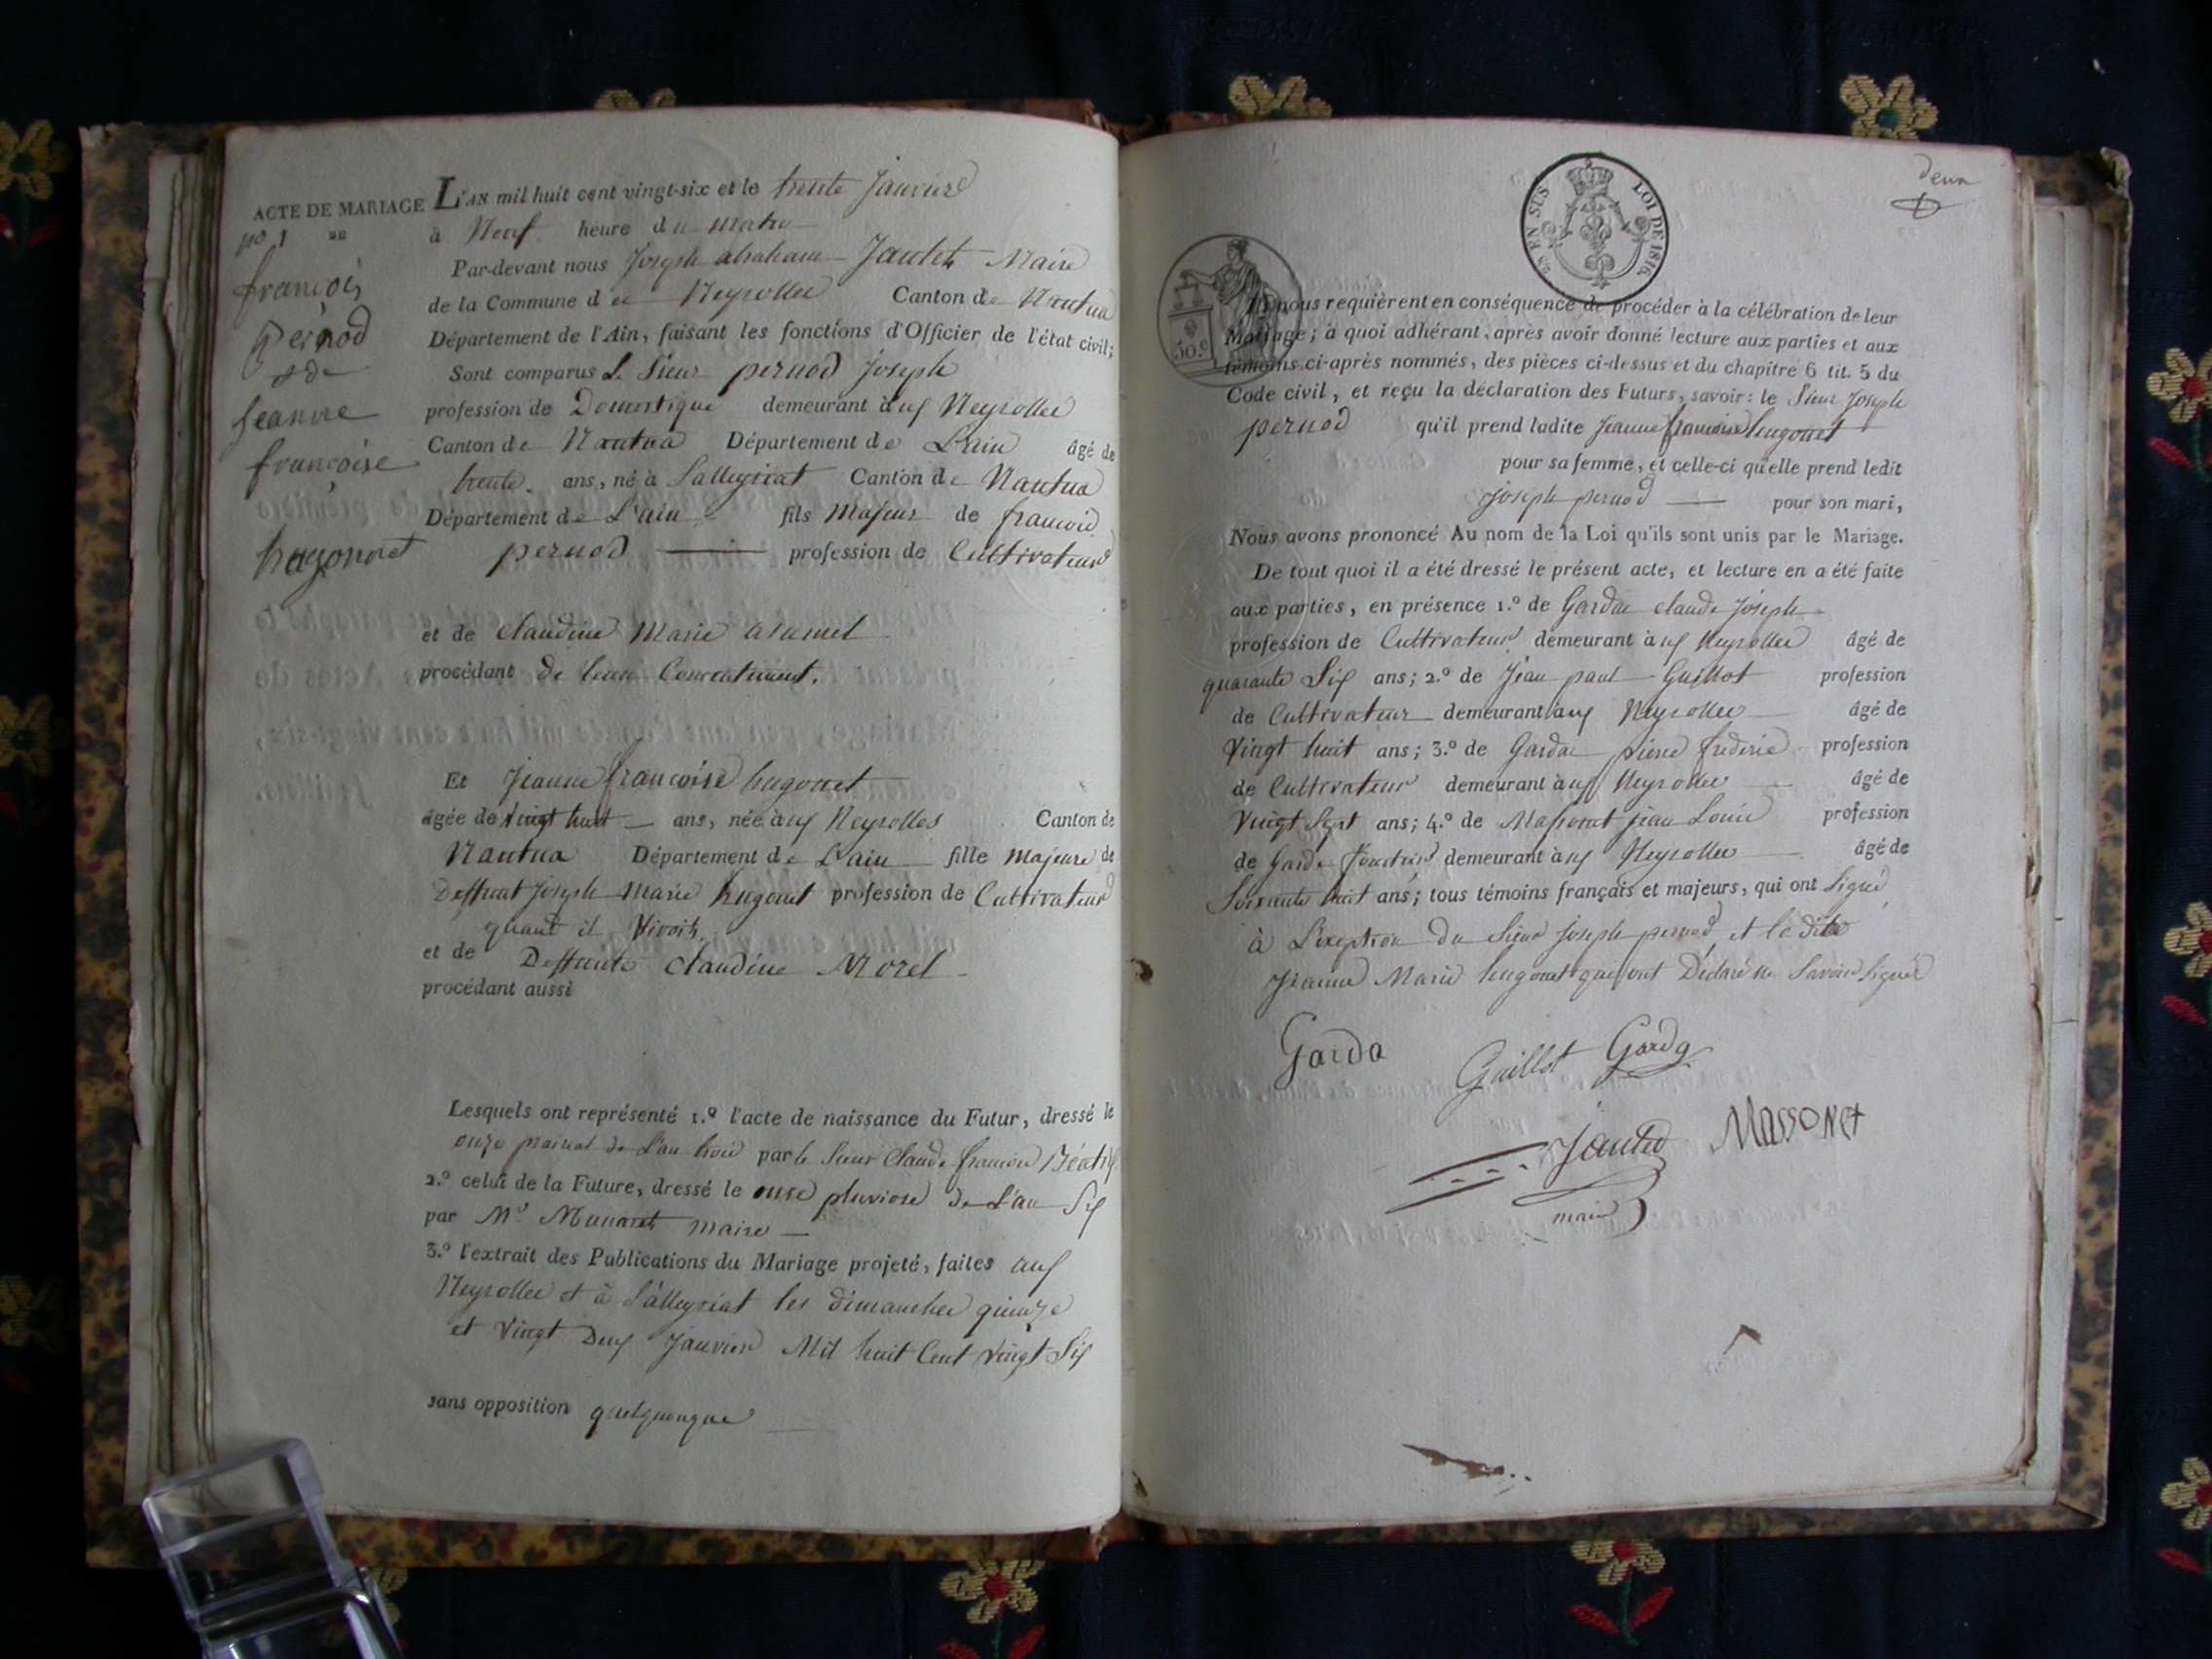 ACTE DE MARIAGE
no 1er
françois
pernod
& de
Jeanne
françoise
hugonnet
L'AN mil huit cent vingt-six et le trente Janvier
à Neuf heure du matin
Par-devant nous Joseph abraham Jantet Maire
de la Commune des Neyrolles Canton de Nantua
Département de l'Ain, faisant les fonctions d'Officier de l'état civil;
Sont comparus Le Sieur pernod Joseph
profession de Domestique demeurant aux Neyrolles
Canton de Nantua Département de L'ain âgé de
trente ans, né à Sallegriat Canton de Nantua
Département de L'ain fils Majeur de françois
pernod profession de Cultivateur
et de Claudine Marie
procédant de leur Consentement.
Et Jeanne françoise hugonet
âgée de vingt huit ans, née aux Neyrolles Canton de
Nantua Département de L'ain fille Majeure de
Deffunt Joseph Marie hugonet profession de Cultivateur
quand il Vivoit
et de Deffunte Claudine Morel
procédant aussi
Lesquels ont représenté 1.º l'acte de naissance du Futur, dressé le
onze prairial de L'an trois par le Sieur Claude françois
2.º celui de la Future, dressé le onze pluviose de L'an Six
par Mr Munaret maire
3.º l'extrait des Publications du Mariage projeté, faites aux
Neyrolles et à Sallegriat les dimanches quinze
et Vingt Deux Janvier Mil huit Cent Vingt Six
sans opposition quelquonque
deux
EN SUS LOI DE 1816.
50.c
nous requièrent en conséquence de procéder à la célébration de leur
Mariage; à quoi adhérant, après avoir donné lecture aux parties et aux
témoins ci-après nommés, des pièces ci-dessus et du chapitre 6 tit. 5 du
Code civil, et reçu la déclaration des Futurs, savoir: le Sieur Joseph
pernod qu'il prend ladite Jeanne françoise hugonet
pour sa femme, et celle-ci qu'elle prend ledit
Joseph pernod pour son mari,
Nous avons prononcé Au nom de la Loi qu'ils sont unis par le Mariage.
De tout quoi il a été dressé le présent acte, et lecture en a été faite
aux parties, en présence 1.º de Garda claude Joseph
profession de Cultivateur demeurant aux Neyrolles âgé de
quarante Six ans; 2.º de Jean paul Guillot profession
de Cultivateur demeurant aux Neyrolles âgé de
Vingt huit ans; 3.º de Garda pierre frederic profession
de Cultivateur demeurant aux Neyrolles âgé de
Vingt Sept ans; 4.º de Massonet jean Louis profession
de Garde forestier demeurant aux Neyrolles âgé de
Soixante huit ans; tous témoins français et majeurs, qui ont Signé
à L'exeption du Sieur Joseph pernod et la dite
Jeanne Marie hugonet qui ont Déclaré ne Savoir Signer
Garda
Guillot Garda
Jantet Massonet
maire